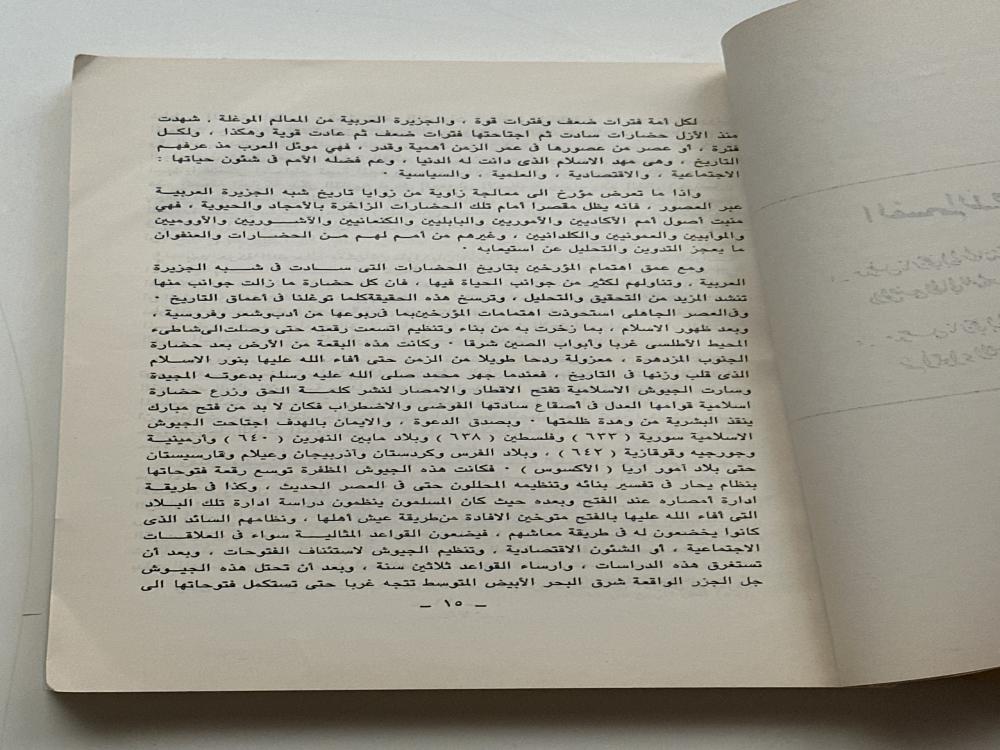 لكل أمة فترات ضعف وفترات قوة ، والجزيرة العربية من المعالم الموغلة . شهدت
منذ الأزل حضارات سادت ثم اجتاحتها فترات ضعف ثم عادت قوية وهكذا ، ولكل
فترة ، أو عصر من عصورها فى عمر الزمن أهمية وقدر ، فهي موئل العرب مذ عرفهم
التاريخ ، وهى مهد الاسلام الذى دانت له الدنيا ، وعم فضله الأمم فى شئون حياتها :
الاجتماعية ، والاقتصادية ، والعلمية ، والسياسية ٠
واذا ما تعرض مؤرخ الى معالجة زاوية من زوايا تاريخ شبه الجزيرة العربية
عبر العصور ، فانه يظل مقصرا أمام تلك الحضارات الزاخرة بالأمجاد والحيوية ، فهي
منبت أصول أمم الأكاديين والأموريين والبابليين والكنعانيين والآشوريين والأدوميين
والموآبيين والعمونيين والكلدانيين ، وغيرهم من أمم لهم من الحضارات والعنفوان
ما يعجز التدوين والتحليل عن استيعابه ٠
ومع عمق اهتمام المؤرخين بتاريخ الحضارات التى سادت فى شبه الجزيرة
العربية ، وتناولهم لكثير من جوانب الحياة فيها ، فان كل حضارة ما زالت جوانب منها
تنشد المزيد من التحقيق والتحليل ، وترسخ هذه الحقيقة كلما توغلنا فى أعماق التاريخ ٠
وفى العصر الجاهلى استحوذت اهتمامات المؤرخين بما فى ربوعها من أدب وشعر وفروسية ،
وبعد ظهور الاسلام ، بما زخرت به من بناء وتنظيم اتسعت رقعته حتى وصلت الى شاطىء
المحيط الأطلسى غربا وأبواب الصين شرقا ٠ وكانت هذه البقعة من الأرض بعد حضارة
الجنوب المزدهرة ، معزولة ردحا طويلا من الزمن حتى أفاء الله عليها بنور الاسلام
الذى قلب وزنها فى التاريخ ، فعندما جهر محمد صلى الله عليه وسلم بدعوته المجيدة
وسارت الجيوش الاسلامية تفتح الاقطار والامصار لنشر كلمة الحق وزرع حضارة
اسلامية قوامها العدل فى أصقاع سادتها الفوضى والاضطراب فكان لا بد من فتح مبارك
ينقذ البشرية من وهدة ظلمتها ٠ وبصدق الدعوة ، والايمان بالهدف اجتاحت الجيوش
الاسلامية سورية ( ٦٣٣ ) وفلسطين ( ٦٣٨ ) وبلاد مابين النهرين ( ٦٤٠ ) وأرمينية
وجورجيه وقوقازية ( ٦٤٢ ) ، وبلاد الفرس وكردستان وآذربيجان وعيلام وفارسيستان
حتى بلاد آمور اريا ( الأكسوس ) ٠ فكانت هذه الجيوش المظفرة توسع رقعة فتوحاتها
بنظام يحار فى تفسير بنائه وتنظيمه المحللون حتى فى العصر الحديث ، وكذا فى طريقة
ادارة أمصاره عند الفتح وبعده حيث كان المسلمون ينظمون دراسة ادارة تلك البلاد
التى أفاء الله عليها بالفتح متوخين الافادة من طريقة عيش أهلها ، ونظامهم السائد الذى
كانوا يخضعون له فى طريقة معاشهم ، فيضعون القواعد المثالية سواء فى العلاقات
الاجتماعية ، أو الشئون الاقتصادية ، وتنظيم الجيوش لاستئناف الفتوحات ، وبعد أن
تستغرق هذه الدراسات ، وارساء القواعد ثلاثين سنة ، وبعد أن تحتل هذه الجيوش
جل الجزر الواقعة شرق البحر الأبيض المتوسط تتجه غربا حتى تستكمل فتوحاتها الى
– ١٥ –